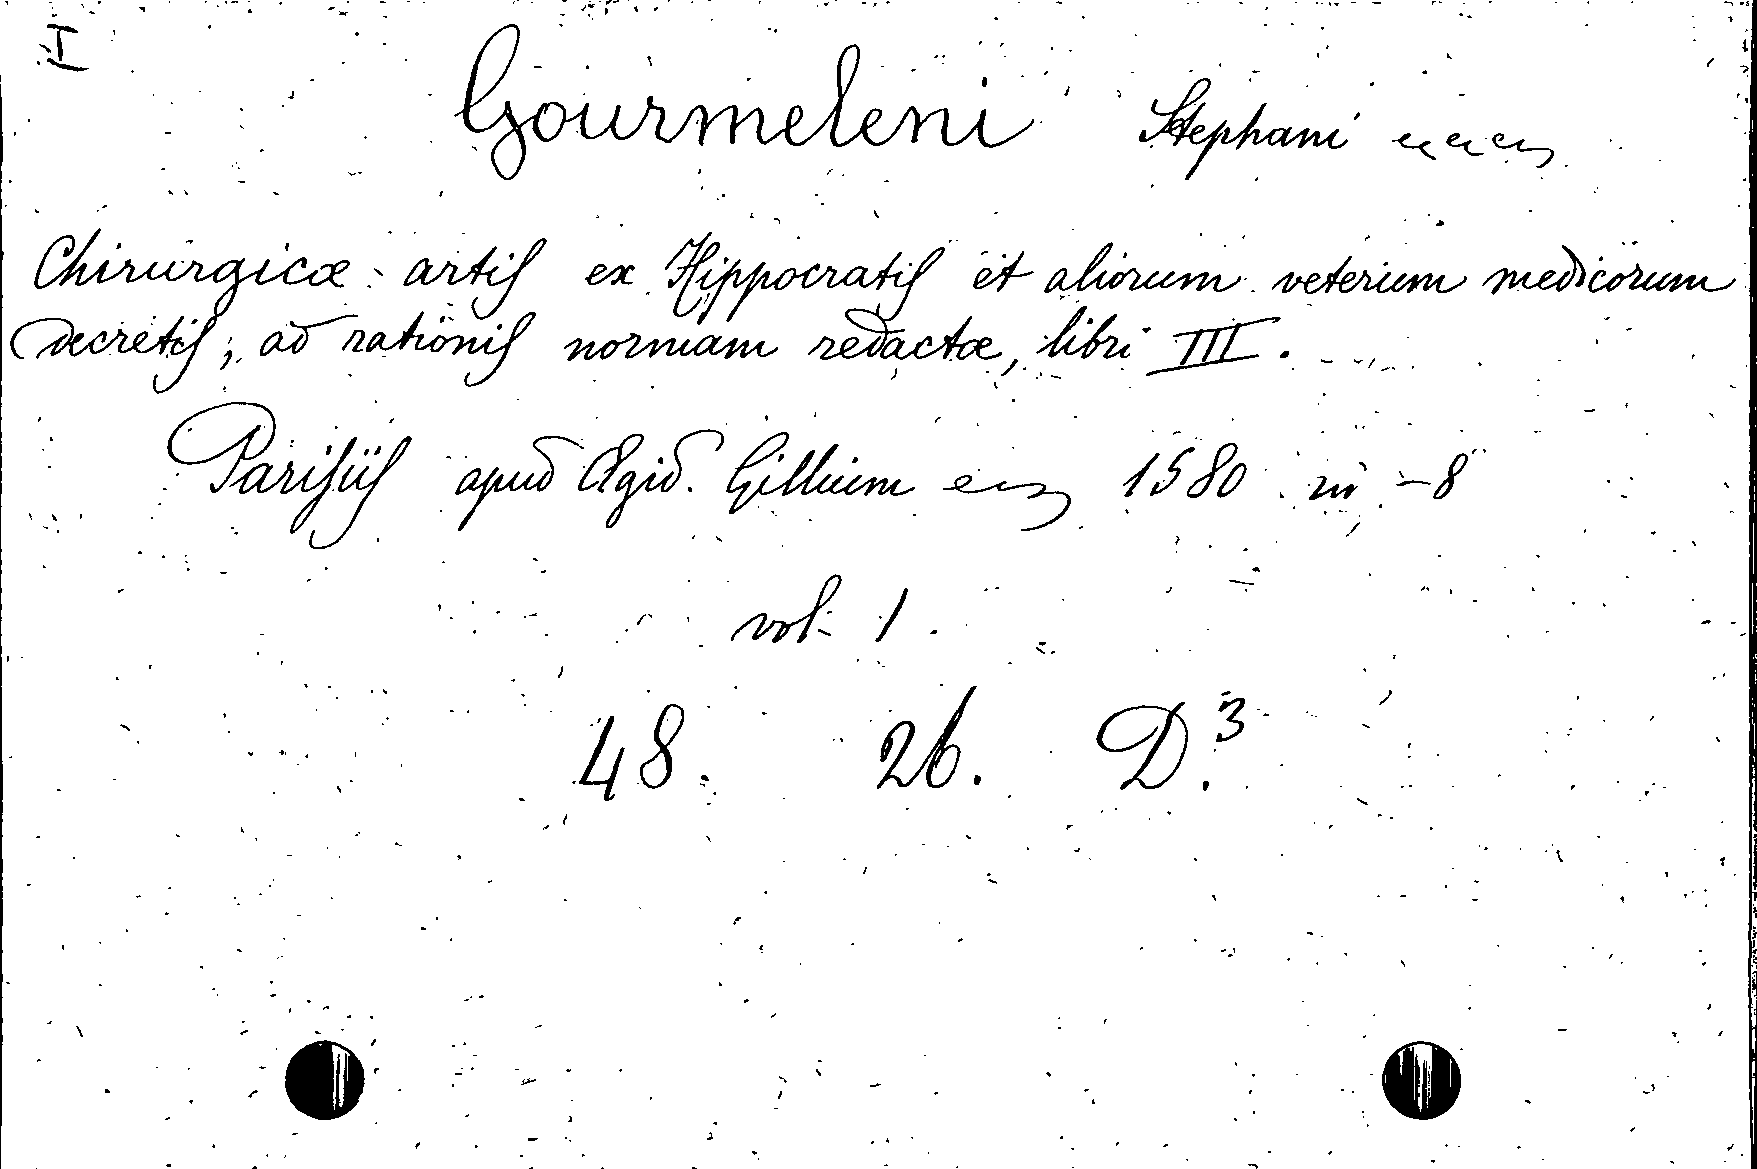 Gourmeleni Stephani
Chirurgicæ artis ex Hippocratis et aliorum veterium medicorum
decretis, ad rationis normam redactæ, libri III.
Parisiis apud Ægid. Gillium 1580 in-8
vol. 1.
48. 26. D.³